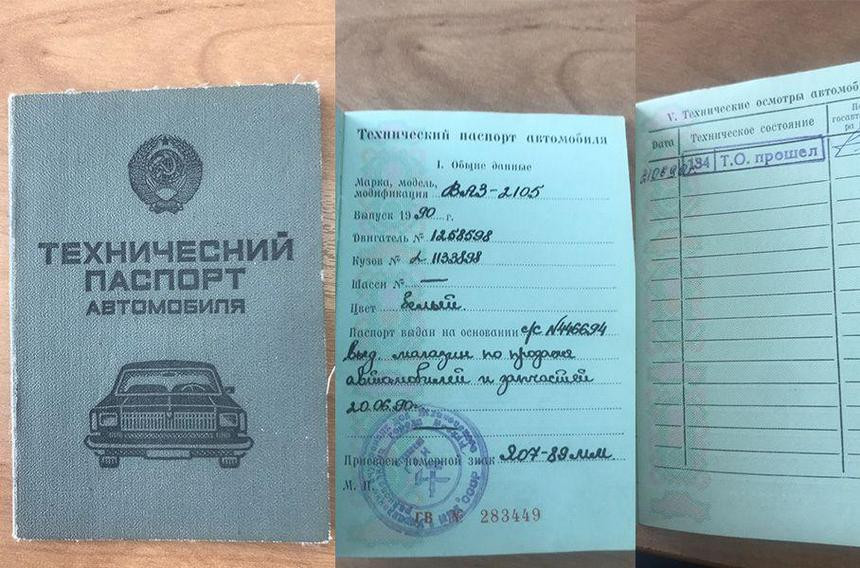 ТЕХНИЧЕСКИЙ
ПАСПОРТ
АВТОМОБИЛЯ
Технический паспорт автомобиля
I. Общие данные
Марка, модель,
модификация ВАЗ-2105
Выпуск 1990 г.
Двигатель № 1258598
Кузов № 1133898
Шасси № —
Цвет белый.
Паспорт выдан на основании с/с №446694
выд. магазин по продаже
автомобилей и запчастей
20.06.90г
Присвоен номерной знак 207-89 мм.
М. П.
ГВ № 283449
V. Технические осмотры автомоб
Дата
Техническое состояние
134 Т.О. прошел